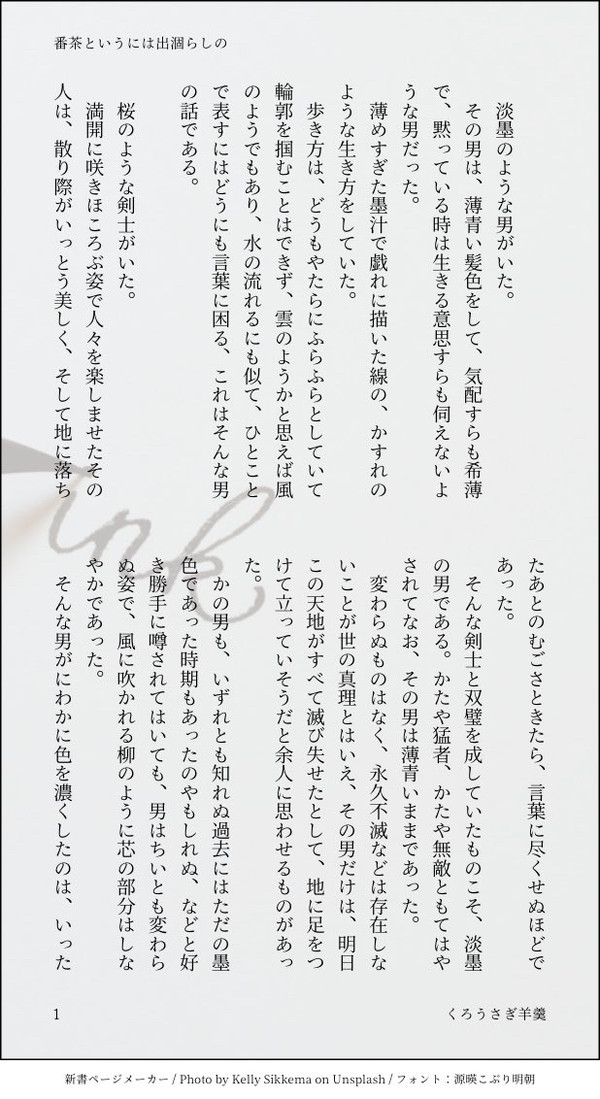 番茶というには出涸らしの
淡墨のような男がいた。
その男は、薄青い髪色をして、気配すらも希薄
で、黙っている時は生きる意思すらも伺えないよ
うな男だった。
薄めすぎた墨汁で戯れに描いた線の、かすれの
ような生き方をしていた。
歩き方は、どうもやたらにふらふらとしていて
輪郭を掴むことはできず、雲のようかと思えば風
のようでもあり、水の流れるにも似て、ひとこと
で表すにはどうにも言葉に困る、これはそんな男
の話である。
桜のような剣士がいた。
満開に咲きほころぶ姿で人々を楽しませたその
人は、散り際がいっとう美しく、そして地に落ち
たあとのむごさときたら、言葉に尽くせぬほどで
あった。
そんな剣士と双璧を成していたものこそ、淡墨
の男である。かたや猛者、かたや無敵ともてはや
されてなお、その男は薄青いままであった。
変わらぬものはなく、永久不滅などは存在しな
いことが世の真理とはいえ、その男だけは、明日
この天地がすべて滅び失せたとして、地に足をつ
けて立っていそうだと余人に思わせるものがあっ
た。
かの男も、いずれとも知れぬ過去にはただの墨
色であった時期もあったのやもしれぬ、などと好
き勝手に噂されてはいても、男はちいとも変わら
ぬ姿で、風に吹かれる柳のように芯の部分はしな
やかであった。
そんな男がにわかに色を濃くしたのは、いった
ink
1
くろうさぎ羊羹
新書ページメーカー / Photo by Kelly Sikkema on Unsplash / フォント：源暎こぶり明朝